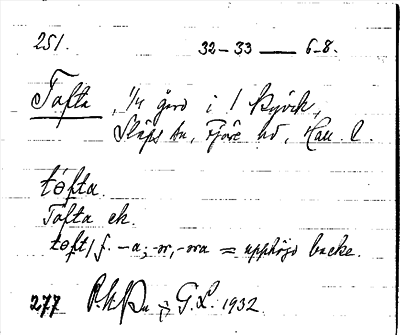 251. 32–33 — 6–8.
Tofta, 1/4 gård i 1 Byvik,
Släps sn, Fjäre hd, Hall. l.
tófta.
Tofta ek.
toft, f. –a; –ər, –ɔra = upphöjd backe.
277 G.L. 1932